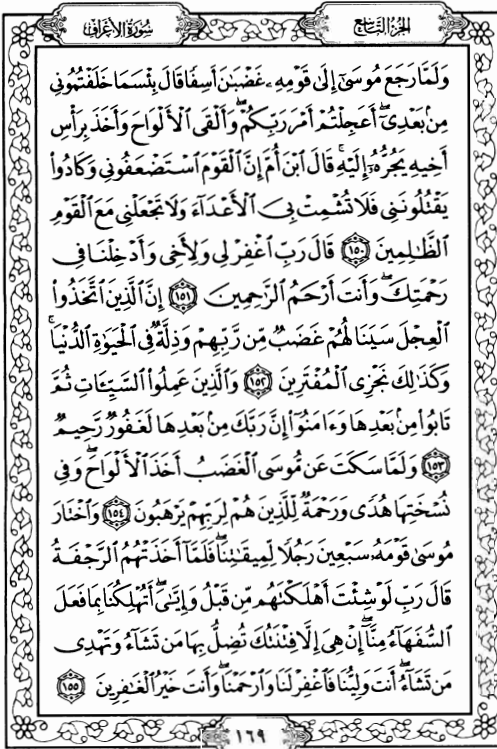 سُورَةُ الأَعْرَافِ الجُزْءُ التَّاسِعُ
وَلَمَّا رَجَعَ مُوسَىٰٓ إِلَىٰ قَوْمِهِۦ غَضْبَٰنَ أَسِفًا قَالَ بِئْسَمَا خَلَفْتُمُونِي
مِنۢ بَعْدِيٓۖ أَعَجِلْتُمْ أَمْرَ رَبِّكُمْۖ وَأَلْقَى ٱلْأَلْوَاحَ وَأَخَذَ بِرَأْسِ
أَخِيهِ يَجُرُّهُۥٓ إِلَيْهِۚ قَالَ ٱبْنَ أُمَّ إِنَّ ٱلْقَوْمَ ٱسْتَضْعَفُونِي وَكَادُوا۟
يَقْتُلُونَنِي فَلَا تُشْمِتْ بِيَ ٱلْأَعْدَآءَ وَلَا تَجْعَلْنِي مَعَ ٱلْقَوْمِ
ٱلظَّٰلِمِينَ ١٥٠ قَالَ رَبِّ ٱغْفِرْ لِي وَلِأَخِي وَأَدْخِلْنَا فِي
رَحْمَتِكَۖ وَأَنتَ أَرْحَمُ ٱلرَّٰحِمِينَ ١٥١ إِنَّ ٱلَّذِينَ ٱتَّخَذُوا۟
ٱلْعِجْلَ سَيَنَالُهُمْ غَضَبٌ مِّن رَّبِّهِمْ وَذِلَّةٌ فِي ٱلْحَيَوٰةِ ٱلدُّنْيَاۚ
وَكَذَٰلِكَ نَجْزِي ٱلْمُفْتَرِينَ ١٥٢ وَٱلَّذِينَ عَمِلُوا۟ ٱلسَّيِّـَٔاتِ ثُمَّ
تَابُوا۟ مِنۢ بَعْدِهَا وَءَامَنُوٓا۟ إِنَّ رَبَّكَ مِنۢ بَعْدِهَا لَغَفُورٌ رَّحِيمٌ
١٥٣ وَلَمَّا سَكَتَ عَن مُّوسَى ٱلْغَضَبُ أَخَذَ ٱلْأَلْوَاحَۖ وَفِي
نُسْخَتِهَا هُدًى وَرَحْمَةٌ لِّلَّذِينَ هُمْ لِرَبِّهِمْ يَرْهَبُونَ ١٥٤ وَٱخْتَارَ
مُوسَىٰ قَوْمَهُۥ سَبْعِينَ رَجُلًا لِّمِيقَٰتِنَاۖ فَلَمَّآ أَخَذَتْهُمُ ٱلرَّجْفَةُ
قَالَ رَبِّ لَوْ شِئْتَ أَهْلَكْتَهُم مِّن قَبْلُ وَإِيَّٰيَۖ أَتُهْلِكُنَا بِمَا فَعَلَ
ٱلسُّفَهَآءُ مِنَّآۖ إِنْ هِيَ إِلَّا فِتْنَتُكَ تُضِلُّ بِهَا مَن تَشَآءُ وَتَهْدِي
مَن تَشَآءُۖ أَنتَ وَلِيُّنَا فَٱغْفِرْ لَنَا وَٱرْحَمْنَاۖ وَأَنتَ خَيْرُ ٱلْغَٰفِرِينَ ١٥٥
١٦٩